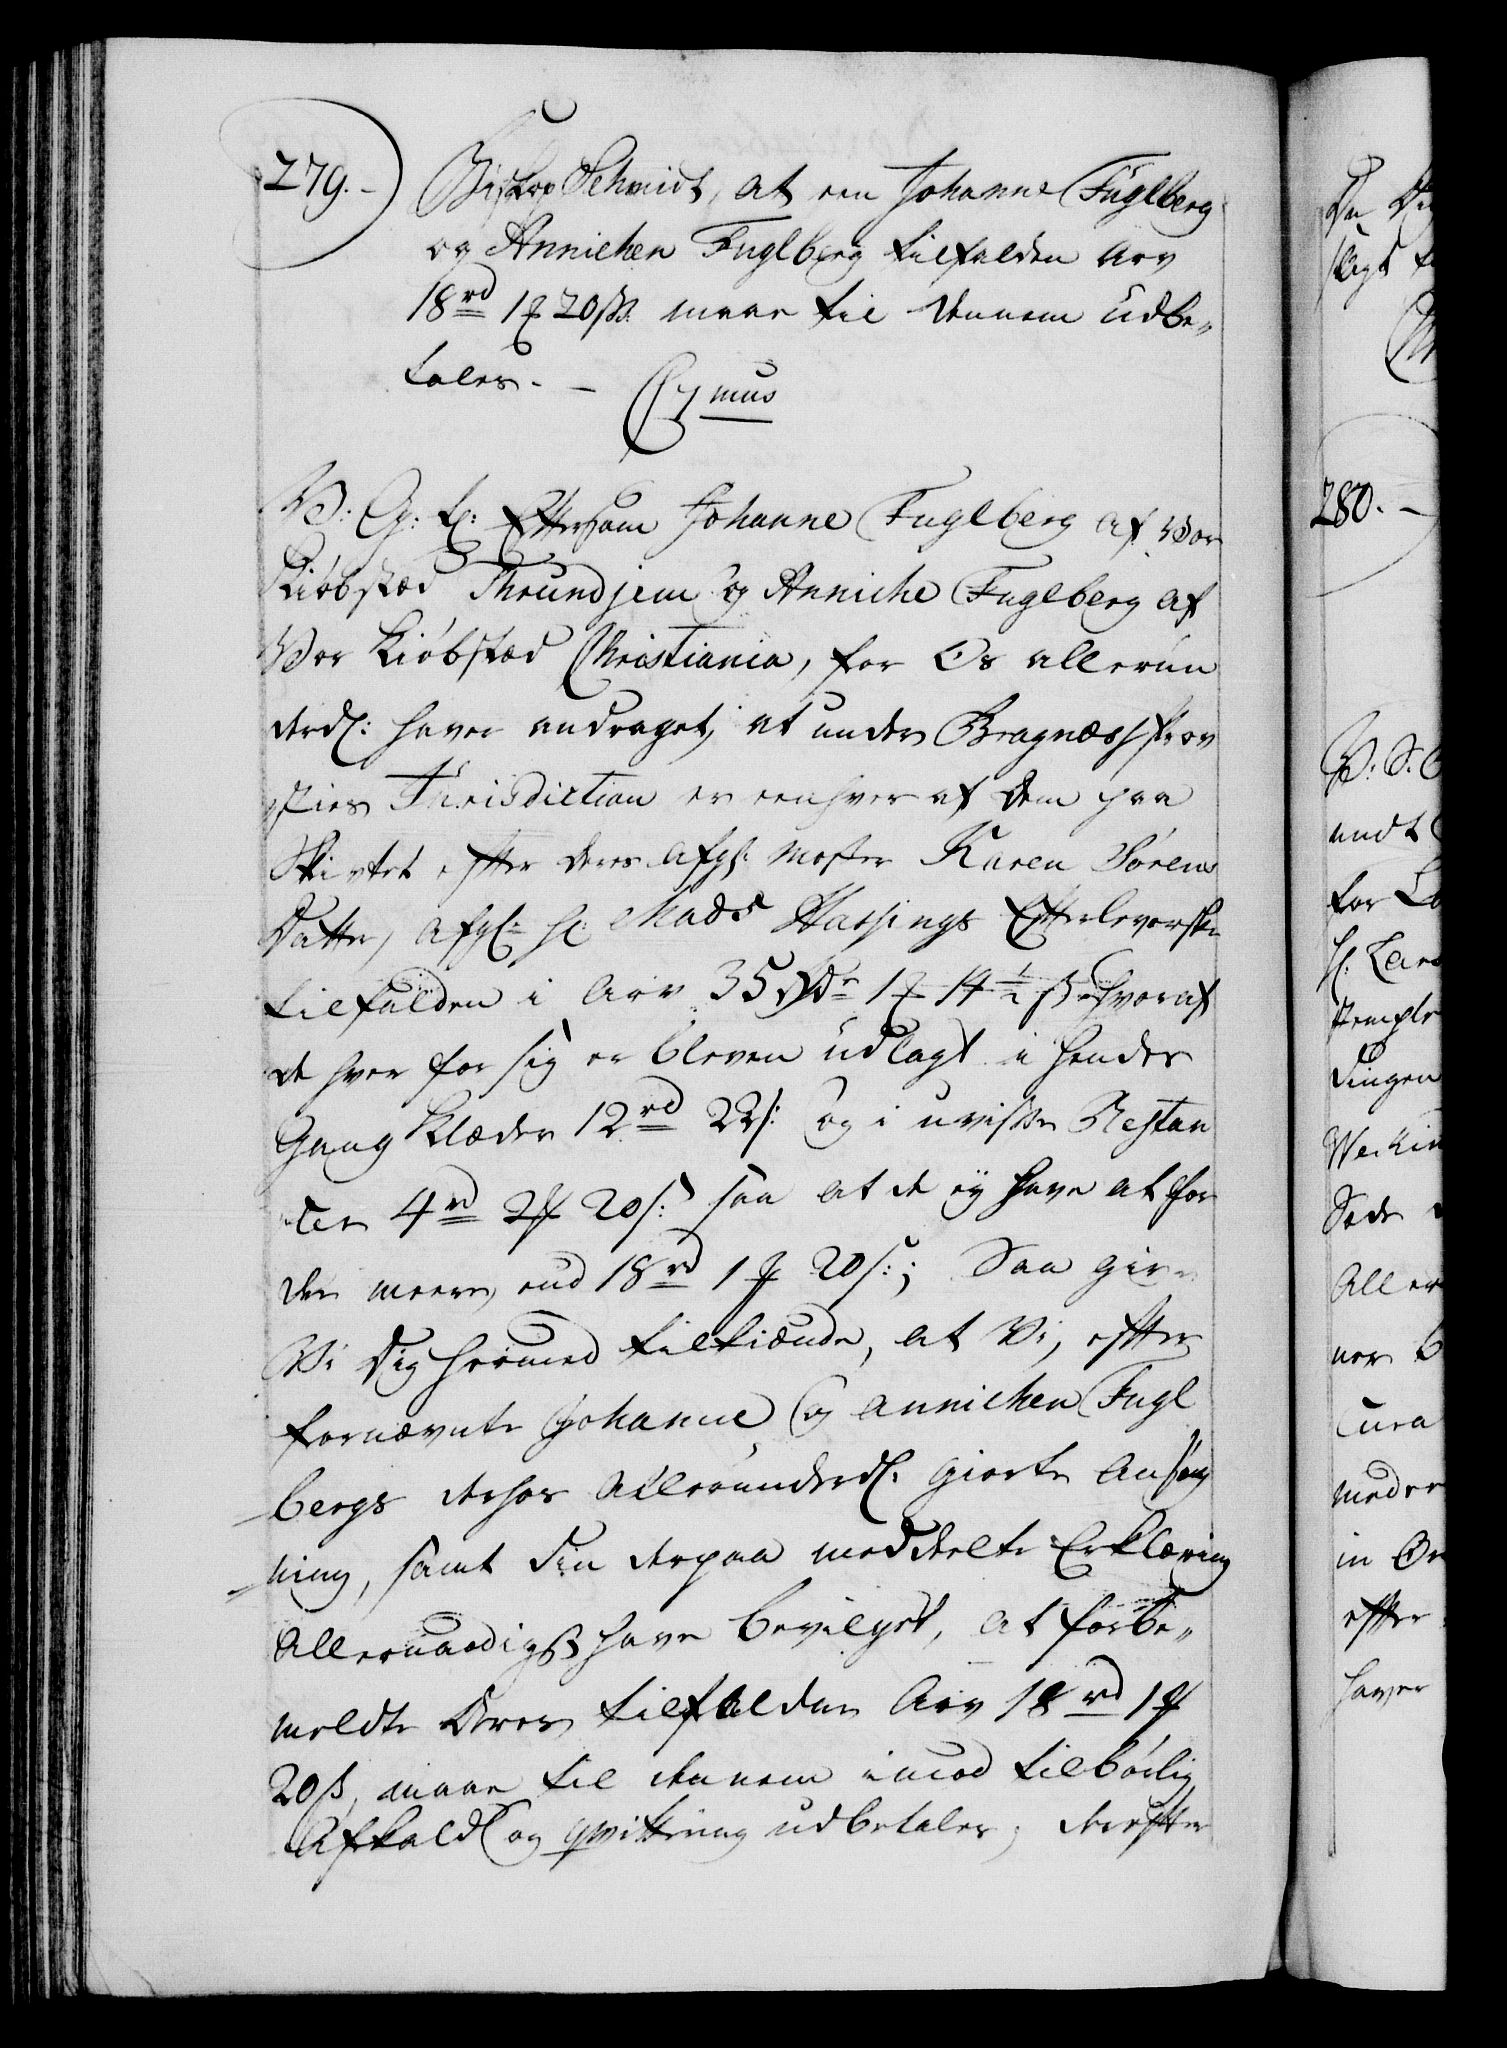 279.-
Biskop Schmidt, at een Johanne Fuglberg
og Annichen Fuglberg tilfalden Arv
18rd 1 ₰ 20 ß. maae til dennem udbe„
tales. -
Cymus
V: G: t: Eftersom Johanne Fuglberg af Vor
Kiøbstæd Thrundjem og Anniche Fuglberg af
Vor Kiøbstæd Christiania, for Os allerun
derd: haver andraget, at under Bragnæss Prov
sties Jurisdiction er eenhver af dem paa
Skiftet efter deres afg: Moster Karen Sørens
Datter, Afgl: Hr: Mads Hassings Efterleverske
tilfalden i Arv 35 Rdr 1 ₰ 14 ½ ß hvoraf
de hver for sig er bleven udlagt i hendes
Gang Klæder 12rd 22ß: og i uvisse Restan
tier 4rd 2 ₰ 20ß: saa at de ey have at for
dre meere, end 18rd 1 ₰ 20ß:; Saa give
Vi dig hermed tilkiende, at Vi, efter
fornævnte Johanne og Annichen Fugl
bergs derhos allerunderd: giorte Ansøg
ning, samt din derpaa meddeelte Erklæring
Allernaadigst have bevilget, at forbe„
meldte deres tilfaldne Arv 18rd 1 ₰
20 ß, maae til dennem imod tilbørlig
Afkald og qvittering udbetales; derefter
Du
280.-
V: S: G
undt
for
Hr. Lars
Sede
Aller
ner
Cura
meder
in
efter
haver